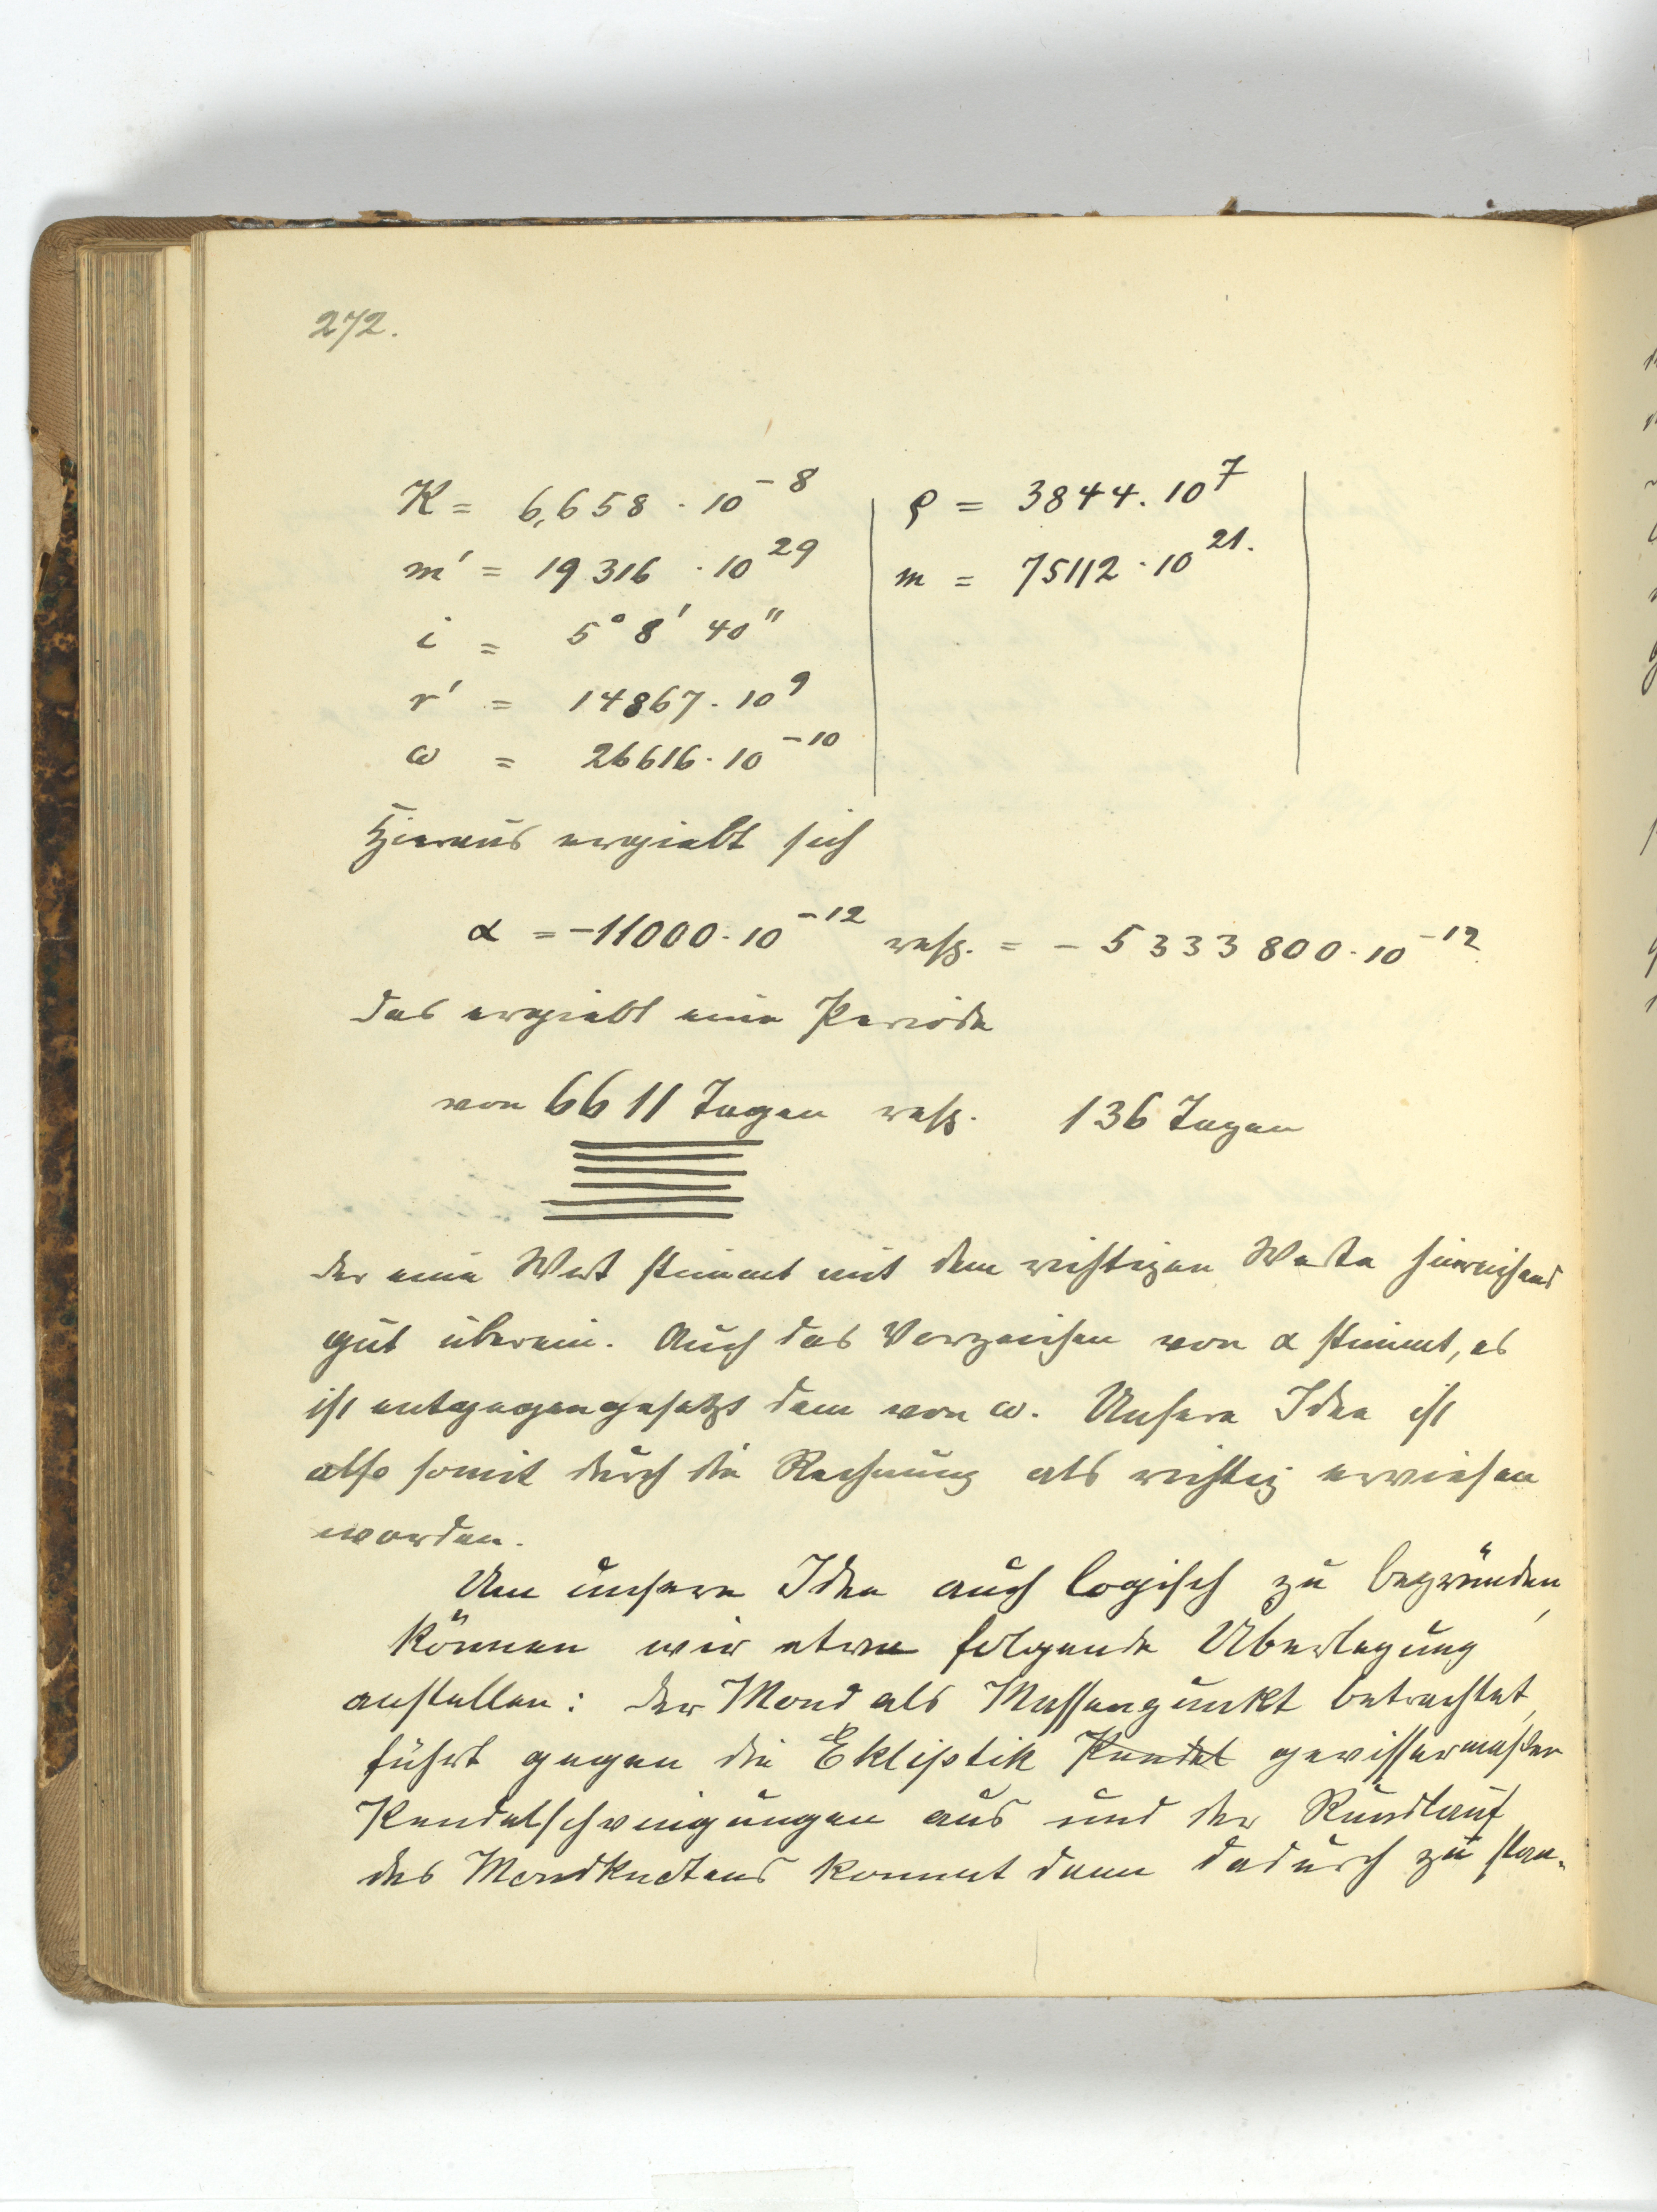 272.
K = 6,658 · 10⁻⁸
m' = 19316 · 10²⁹
i = 5° 8' 40"
r' = 14867 · 10⁹
ω = 26616 · 10⁻¹⁰
ρ = 3844. 10⁷
m = 75112 · 10²¹.
Hieraus ergiebt sich
α = -11000 · 10⁻¹² resp. = - 5333800 · 10⁻¹²
das ergiebt eine Periode
von 6611 Tagen resp. 136 Tagen
der eine Wert stimmt mit dem richtigen Werte hinreichend
gut überein. Auch das Vorzeichen von α stimmt, es
ist entgegengesetzt dem von ω. Unsere Idee ist
also somit durch die Rechnung als richtig erwiesen
worden.
Um unsere Idee auch logisch zu begründen,
können wir etwa folgende Überlegung
anstellen: der Mond als Massenpunkt betrachtet,
führt gegen die Ekliptik Pendel gewissermaßen
Pendelschwingungen aus und der Rundlauf
des Mondknotens kommt dann dadurch zu stan-